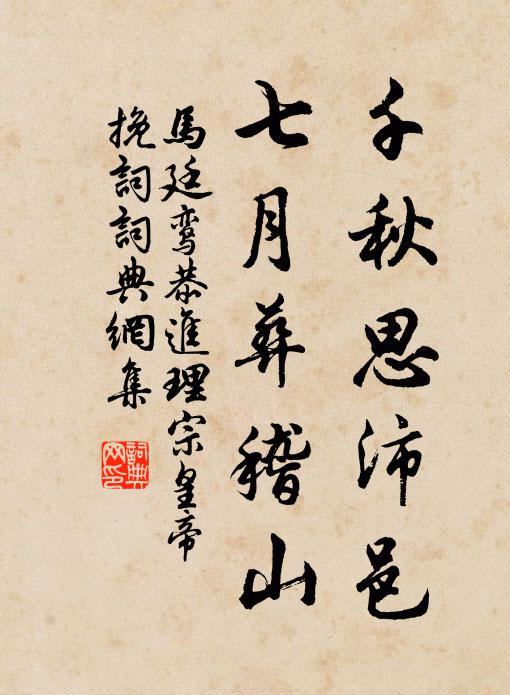 千秋思沛邑
七月葬稽山
馬廷鸞恭進理宗皇帝
挽詞詞典網集
詞典網印